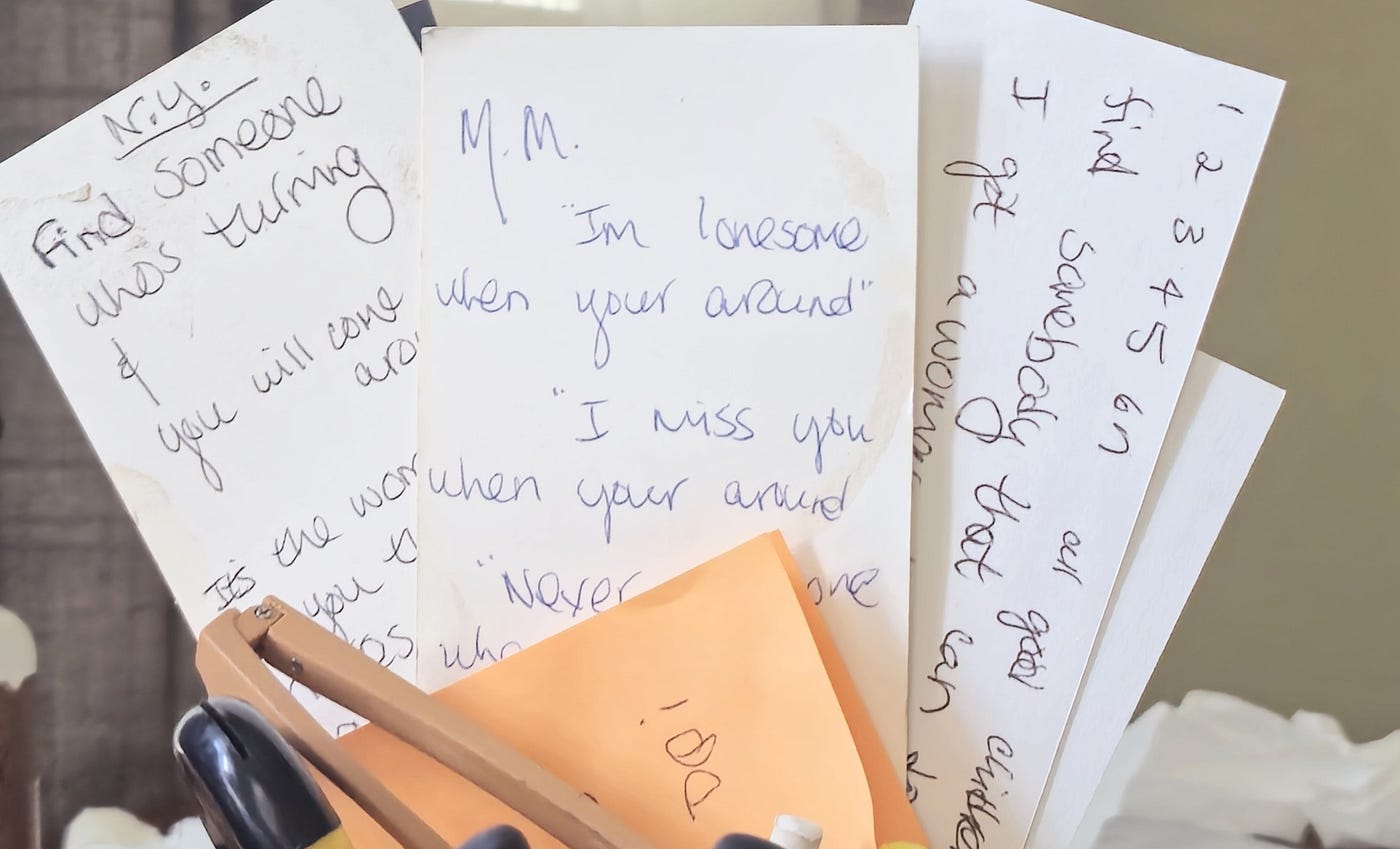 N.Y.
Find someone
who's turning
&
you will come
aro
It's the wor
you t
os
M.M.
"Im lonesome
when your around"
"I miss you
when your around
"Never one
who
1 2 3 4 5 6 n
find somebody that can
I got a woman
our good